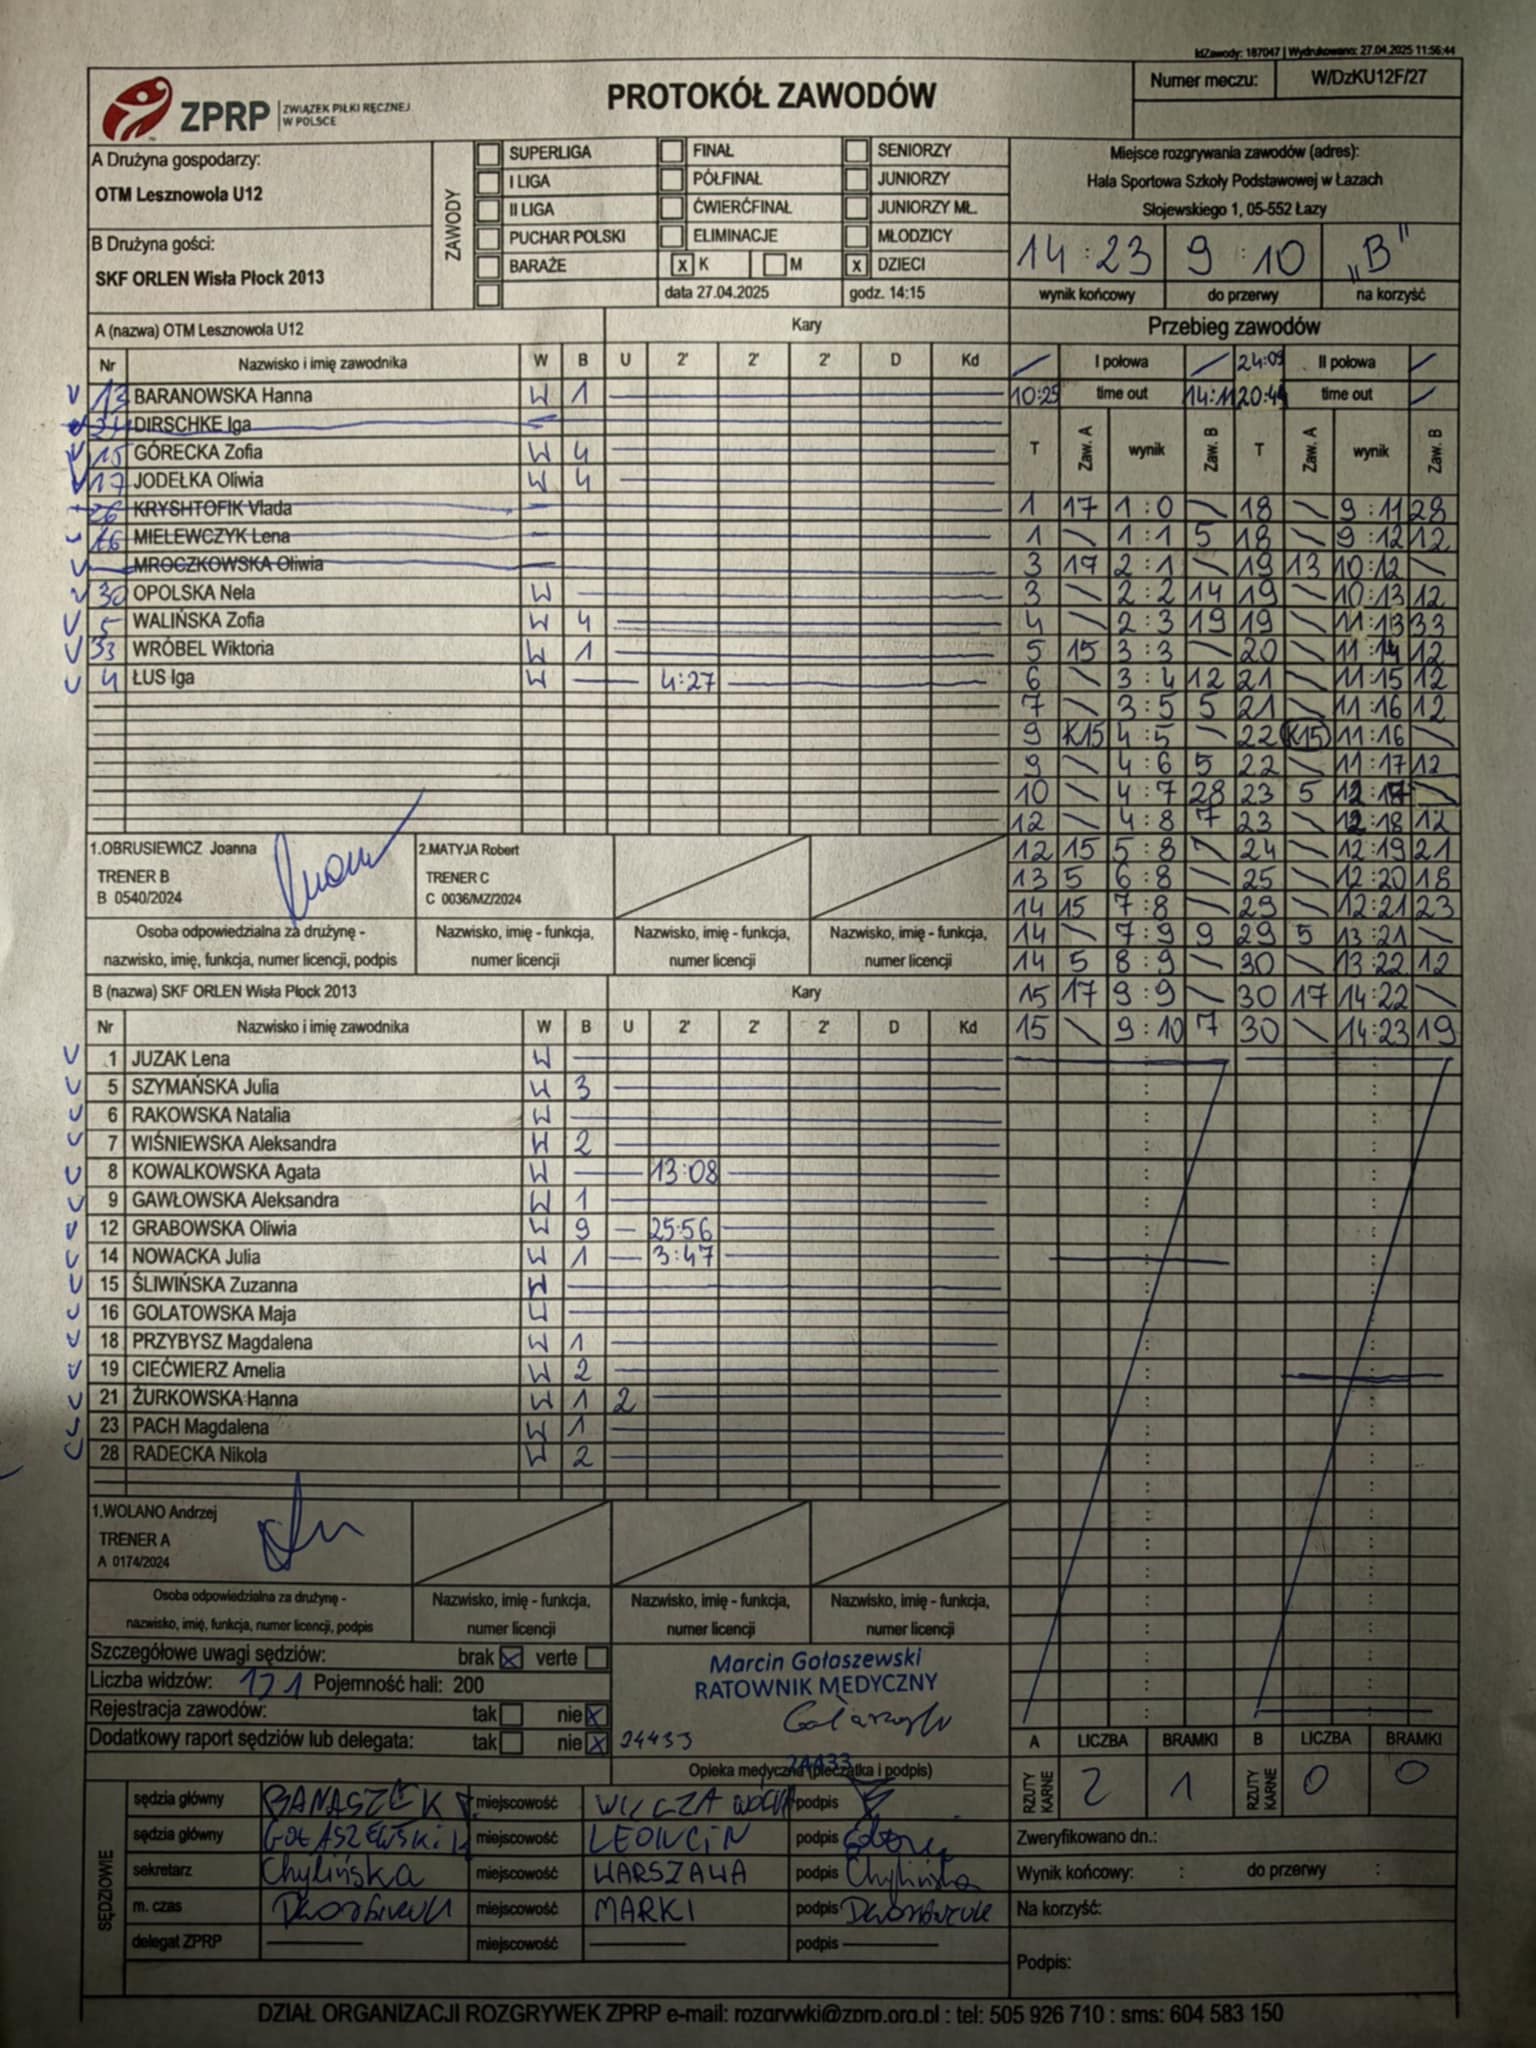 IdZawody: 187047 | Wydrukowano: 27.04.2025 11:56:44
ZPRP ZWIĄZEK PIŁKI RĘCZNEJ W POLSCE
PROTOKÓŁ ZAWODÓW
Numer meczu: W/DzKU12F/27
A Drużyna gospodarzy:
OTM Lesznowola U12
B Drużyna gości:
SKF ORLEN Wisła Płock 2013
ZAWODY
SUPERLIGA FINAŁ SENIORZY
I LIGA PÓŁFINAŁ JUNIORZY
II LIGA ĆWIERĆFINAŁ JUNIORZY MŁ.
PUCHAR POLSKI ELIMINACJE MŁODZICY
BARAŻE x K M x DZIECI
data 27.04.2025 godz. 14:15
Miejsce rozgrywania zawodów (adres):
Hala Sportowa Szkoły Podstawowej w Łazach
Słojewskiego 1, 05-552 Łazy
14:23 9:10 „B"
wynik końcowy do przerwy na korzyść
A (nazwa) OTM Lesznowola U12 Kary
Nr Nazwisko i imię zawodnika W B U 2' 2' 2' D Kd
13 BARANOWSKA Hanna W 1
DIRSCHKE Iga
15 GÓRECKA Zofia W 4
17 JODEŁKA Oliwia W 4
26 KRYSHTOFIK Vlada
16 MIELEWCZYK Lena
MROCZKOWSKA Oliwia
30 OPOLSKA Nela W
5 WALIŃSKA Zofia W 4
33 WRÓBEL Wiktoria W 1
4 ŁUS Iga W 4:27
1.OBRUSIEWICZ Joanna
TRENER B
B 0540/2024
2.MATYJA Robert
TRENER C
C 0036/MZ/2024
Osoba odpowiedzialna za drużynę -
nazwisko, imię, funkcja, numer licencji, podpis
Nazwisko, imię - funkcja,
numer licencji
Nazwisko, imię - funkcja,
numer licencji
Nazwisko, imię - funkcja,
numer licencji
B (nazwa) SKF ORLEN Wisła Płock 2013 Kary
Nr Nazwisko i imię zawodnika W B U 2' 2' 2' D Kd
1 JUZAK Lena W
5 SZYMAŃSKA Julia W 3
6 RAKOWSKA Natalia W
7 WIŚNIEWSKA Aleksandra W 2
8 KOWALKOWSKA Agata W 13:08
9 GAWŁOWSKA Aleksandra W 1
12 GRABOWSKA Oliwia W 9 25:56
14 NOWACKA Julia W 1 3:47
15 ŚLIWIŃSKA Zuzanna W
16 GOLATOWSKA Maja W
18 PRZYBYSZ Magdalena W 1
19 CIEĆWIERZ Amelia W 2
21 ŻURKOWSKA Hanna W 1 2
23 PACH Magdalena W 1
28 RADECKA Nikola W 2
1.WOLANO Andrzej
TRENER A
A 0174/2024
Osoba odpowiedzialna za drużynę -
nazwisko, imię, funkcja, numer licencji, podpis
Nazwisko, imię - funkcja,
numer licencji
Nazwisko, imię - funkcja,
numer licencji
Nazwisko, imię - funkcja,
numer licencji
Przebieg zawodów
I połowa 24:09 II połowa
10:25 time out 14:11 20:44 time out
T Zaw. A wynik Zaw. B T Zaw. A wynik Zaw. B
1 17 1:0 18 9:11 28
1 1:1 5 18 9:12 12
3 17 2:1 19 13 10:12
3 2:2 14 19 10:13 12
4 2:3 19 19 11:13 33
5 15 3:3 20 11:14 12
6 3:4 12 21 11:15 12
7 3:5 5 21 11:16 12
9 K15 4:5 22 K15 11:16
9 4:6 5 22 11:17 12
10 4:7 28 23 5 12:17
12 4:8 7 23 12:18 12
12 15 5:8 24 12:19 21
13 5 6:8 25 12:20 18
14 15 7:8 29 12:21 23
14 7:9 9 29 5 13:21
14 5 8:9 30 13:22 12
15 17 9:9 30 17 14:22
15 9:10 7 30 14:23 19
Szczegółowe uwagi sędziów: brak x verte
Liczba widzów: 121 Pojemność hali: 200
Rejestracja zawodów: tak nie x
Dodatkowy raport sędziów lub delegata: tak nie x 24433
Marcin Gołaszewski
RATOWNIK MEDYCZNY
24433
Opieka medyczna (pieczątka i podpis)
A LICZBA BRAMKI B LICZBA BRAMKI
RZUTY KARNE 2 1 RZUTY KARNE 0 0
SĘDZIOWIE
sędzia główny BANASZEK miejscowość WILCZA podpis
sędzia główny GOŁASZEWSKI miejscowość LEONCIN podpis
sekretarz Chylińska miejscowość WARSZAWA podpis Chylińska
m. czas miejscowość MARKI podpis
delegat ZPRP miejscowość podpis
Zweryfikowano dn.:
Wynik końcowy: : do przerwy :
Na korzyść:
Podpis:
DZIAŁ ORGANIZACJI ROZGRYWEK ZPRP e-mail: rozgrywki@zprp.org.pl : tel: 505 926 710 : sms: 604 583 150